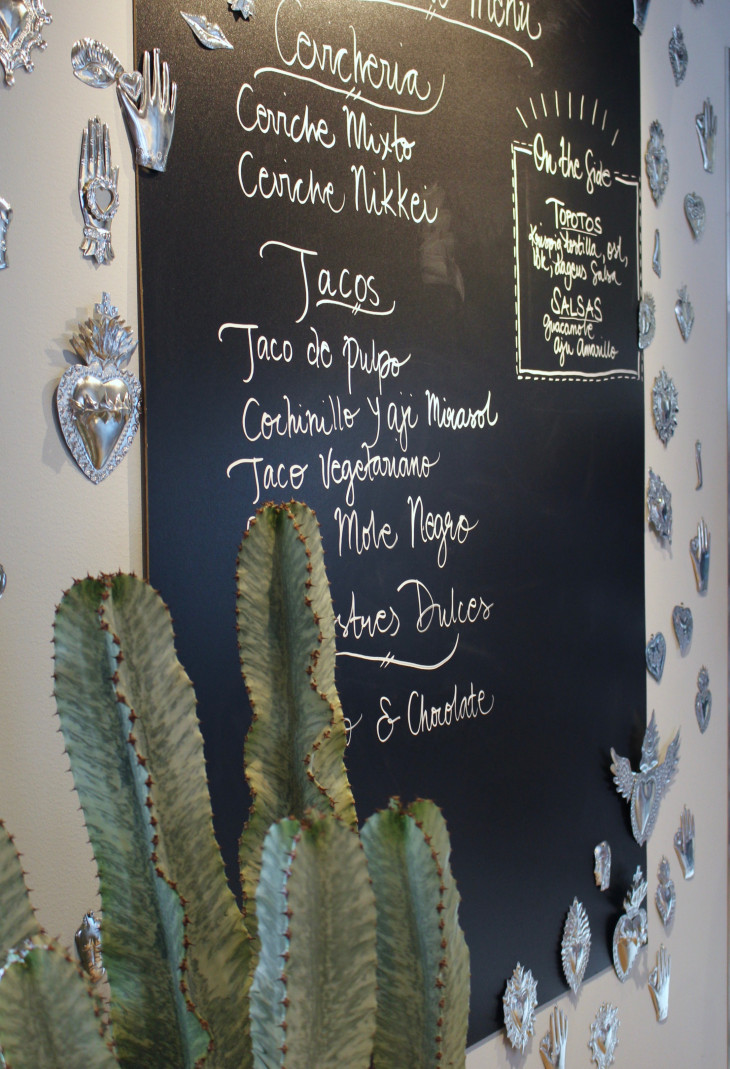 Menu
Cevicheria
Ceviche Mixto
Ceviche Nikkei
Tacos
Taco de Pulpo
Cochinillo y aji Mirasol
Taco Vegetariano
Mole Negro
Dulces
& Chocolate
On the Side
TOPOTOS
Krispig tortilla, ost,
dagens Salsa
SALSAS
guacamole
aji Amarillo